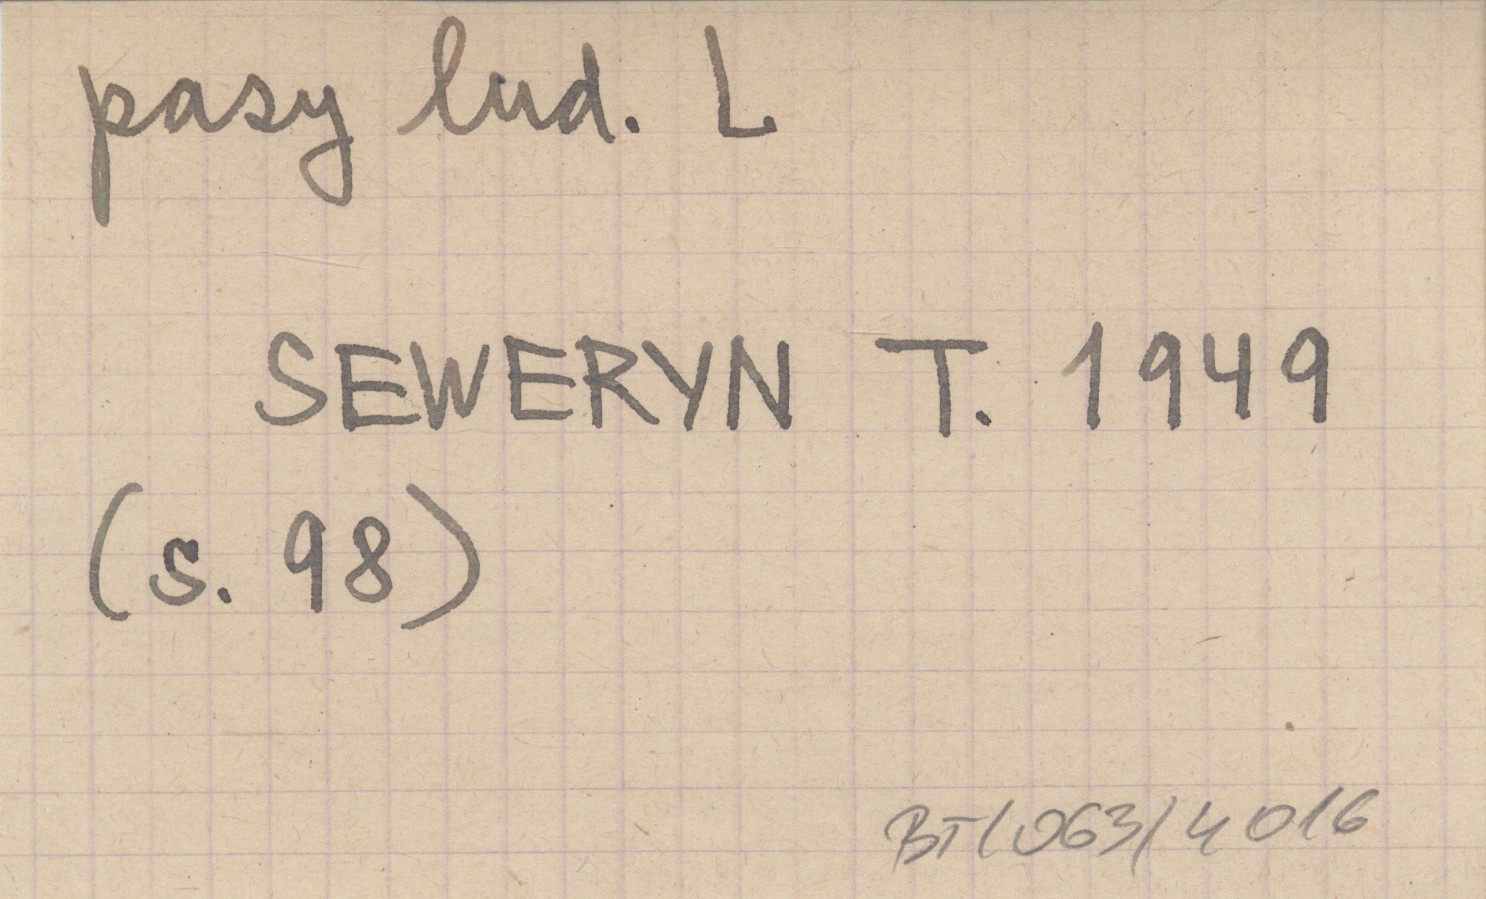 pasy lud. L
SEWERYN T. 1949
(s. 98)
BT/063/4016